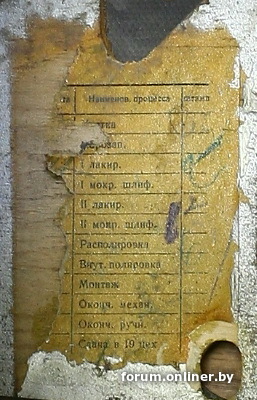 Наименов. процесса
I лакир.
I мокр. шлиф.
II лакир.
II мокр. шлиф.
Располировка
Внут. полировка
Монтаж
Оконч. механ.
Оконч. ручн.
Сдача в 19 цех
forum.onliner.by